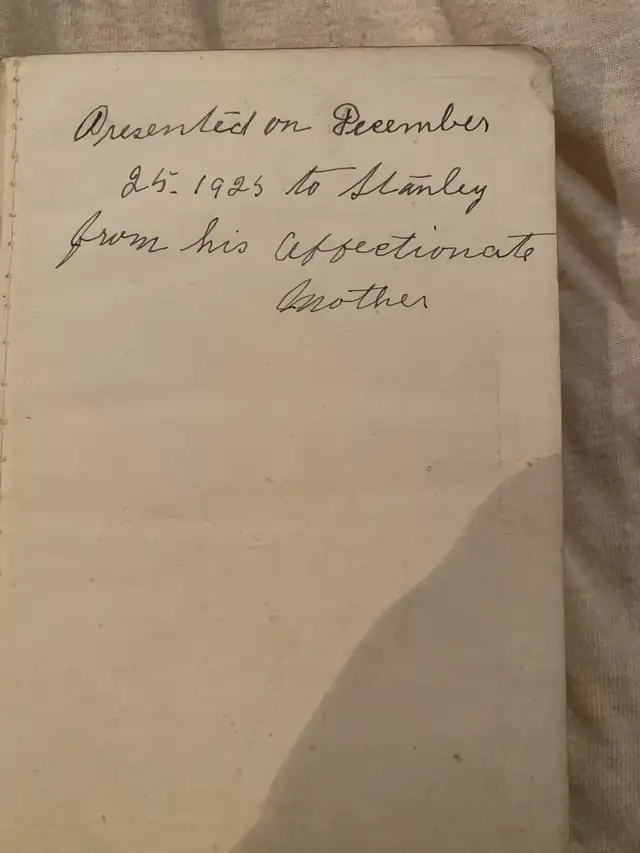 Presented on December
25. 1925 to Stanley
from his affectionate
Mother